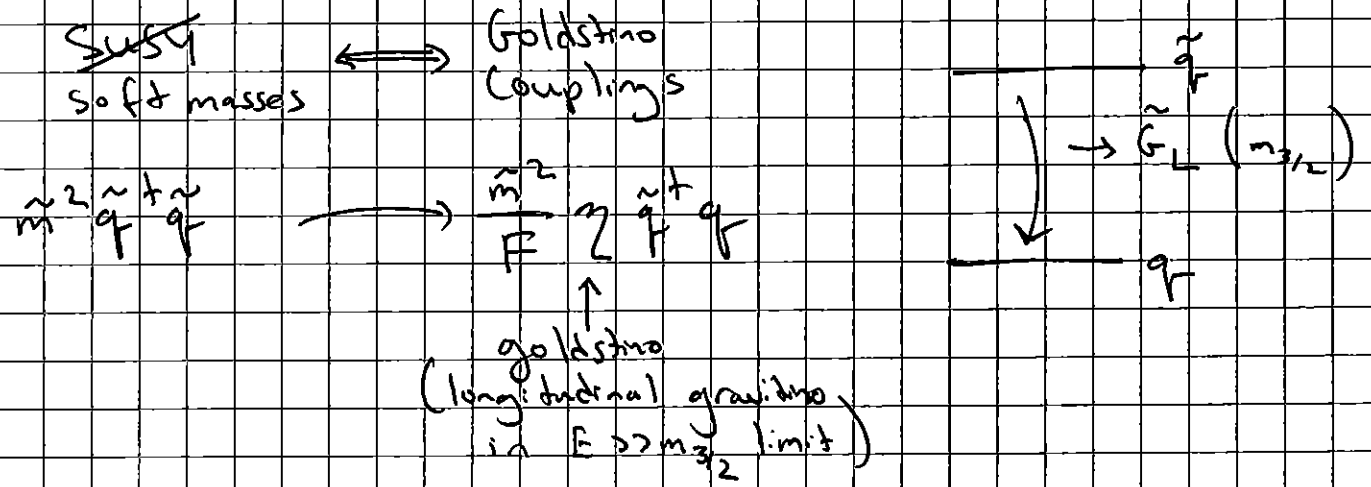 SUSY ⟺ Goldstino
soft masses Couplings
m̃² q̃† q̃ → m̃²/F η q̃† q
↑
goldstino
(longitudinal gravitino
in E >> m_{3/2} limit)
q̃
→ G̃_L (m_{3/2})
q